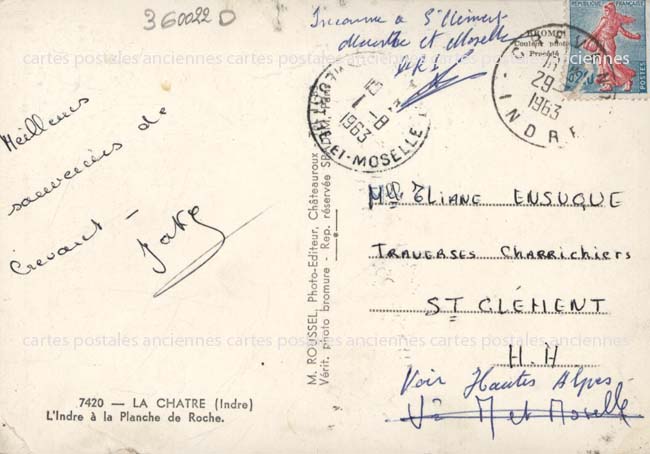 360022 D
Inconnue à St Clément
Meurthe et Moselle
REPUBLIQUE FRANÇAISE
POSTES
BROMO
CREVANT
29
1963
INDRE
1 -8
1963
ET-MOSELLE
cartes postales anciennes cartes postales anciennes cartes postales anciennes
Meilleurs
souvenirs de
Crevant —
M. ROUSSEL, Photo-Editeur, Châteauroux -
Vérit. photo bromure - Rep. réservée
Mlle Eliane ENSUQUE
TRAVERSES CHARRICHIERS
ST CLÉMENT
H.H.
Voir Hautes Alpes
M et Moselle
cartes postales anciennes cartes postales anciennes cartes postales anciennes
7420 — LA CHATRE (Indre)
L'Indre à la Planche de Roche.